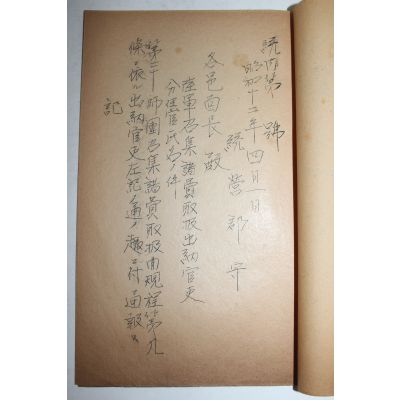 統內第 號
昭和十二年四月一日
統營郡守
各邑面長 殿
陸軍召集諸費取扱出納官吏
分任官氏名ノ件
第二十師團召集諸費取扱規程第九
條ニ依ル出納官吏左記ノ通ノ趣ニ付通報ス
記